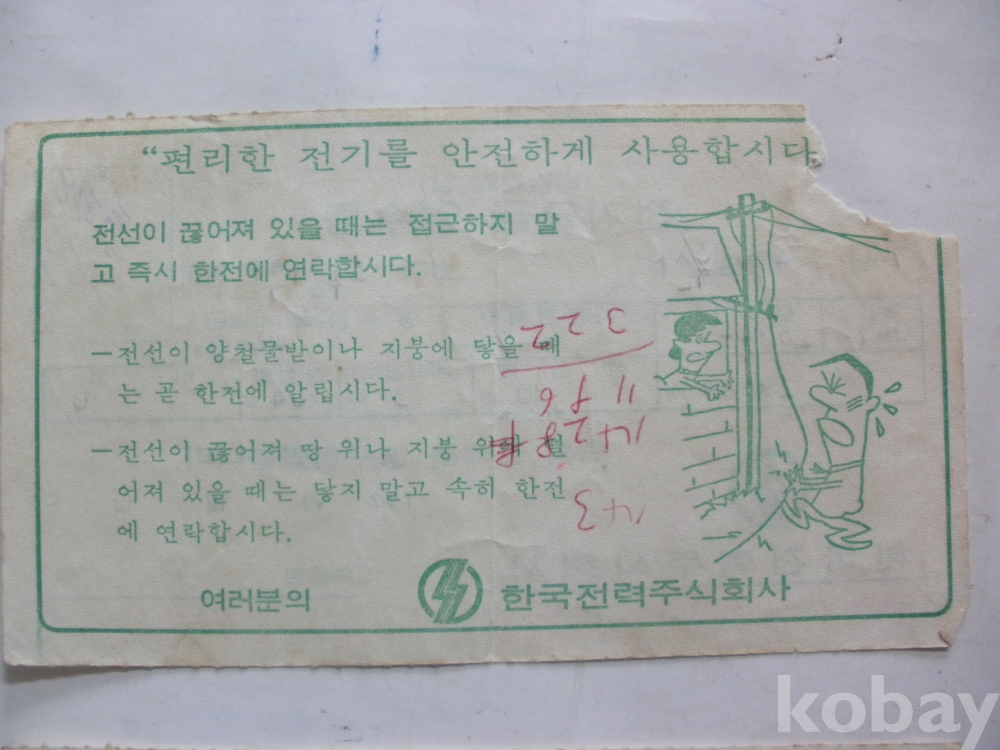 “편리한 전기를 안전하게 사용합시다
전선이 끊어져 있을 때는 접근하지 말
고 즉시 한전에 연락합시다.
—전선이 양철물받이나 지붕에 닿을 때
는 곧 한전에 알립시다.
—전선이 끊어져 땅 위나 지붕 위에
어져 있을 때는 닿지 말고 속히 한전
에 연락합시다.
여러분의 한국전력주식회사
322
1196
1428
43
kobay